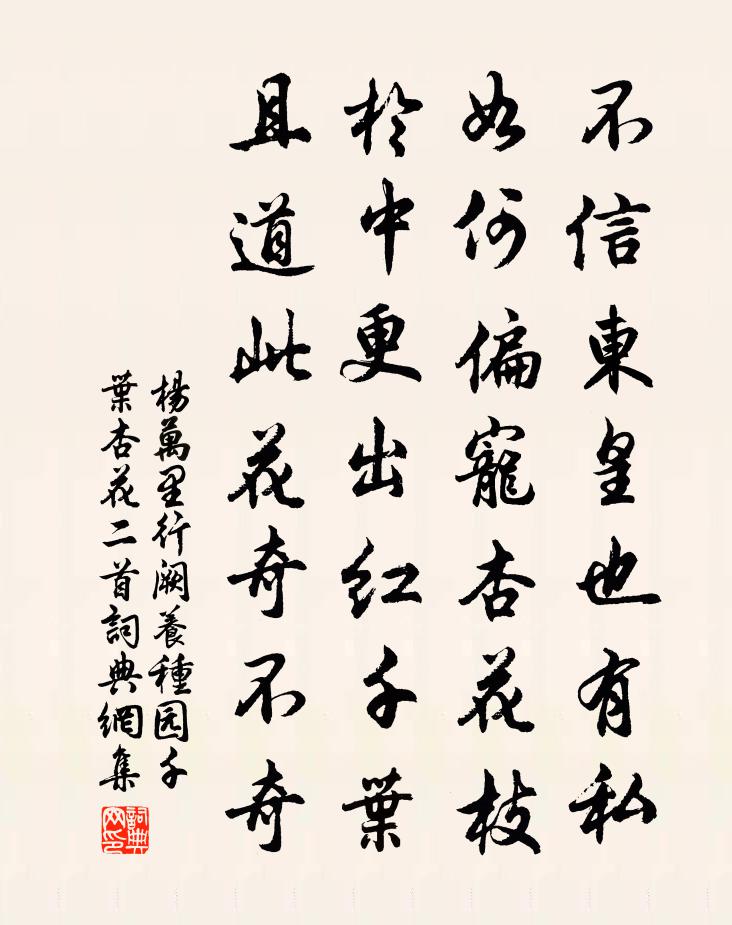 不信東皇也有私
如何偏寵杏花枝
於中更出红千葉
且道此花奇不奇
楊萬里行闕養種园千
葉杏花二首詞典網集
詞典
网印